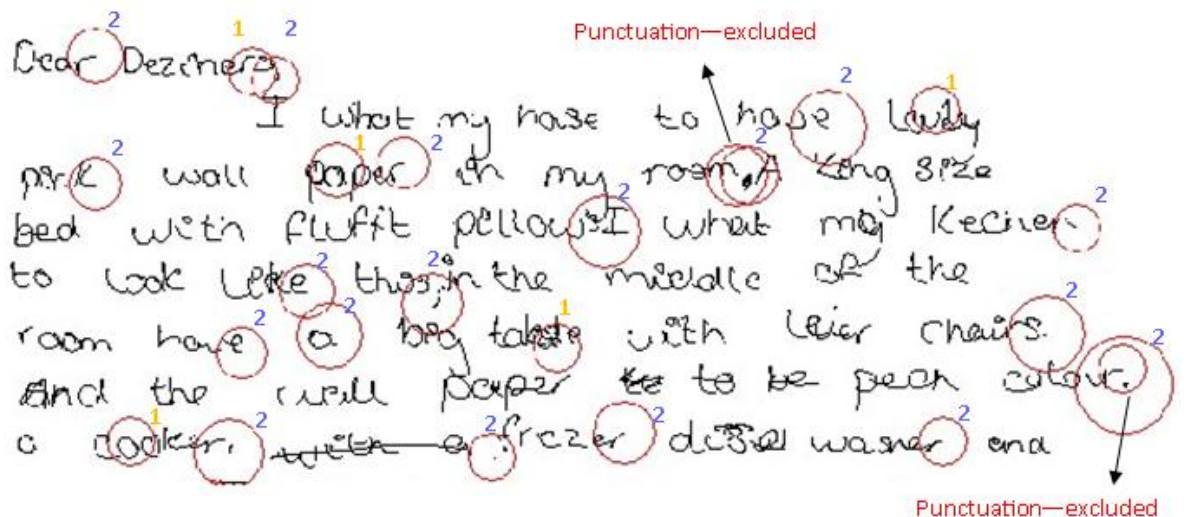 2 1 2 Punctuation—excluded
Dear Deziners,
2 1
I what my hose to have lovly
2 1 2 2
pink wall paper in my room. A king size
2 2
bed with fluffit pillows I what my Keciner
2 2
to look like this, in the middle of the
2 2 1 2 2
room have a big table with leier chairs.
And the wall paper to be pech colour.
1 2 2 2 2
a cooker, with a frezer dish washer and
Punctuation—excluded